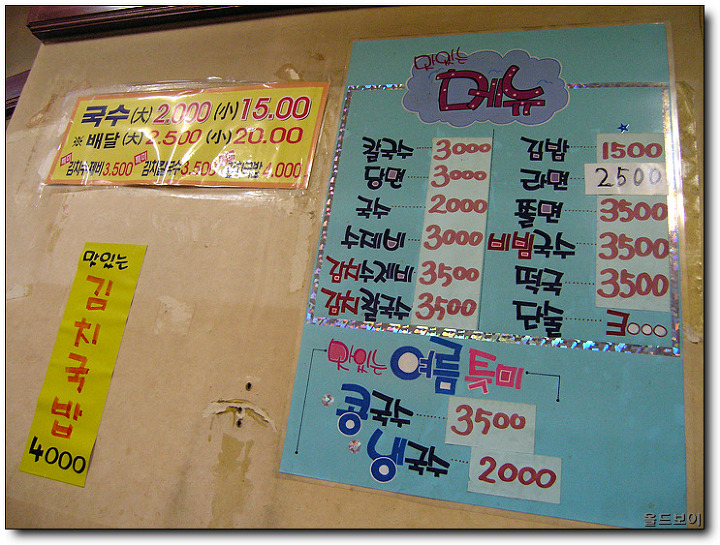 국수(大) 2.000 (小) 15.00
※ 배달(大) 2.500 (小) 20.00
김치수제비 3.500 김치칼국수 3.500 4.000
맛있는
김치국밥
4000
맛있는
메뉴
칼국수 3000
당면 3000
국수 2000
수제비 3000
김치수제비 3500
김치칼국수 3500
김밥 1500
라면 2500
쫄면 3500
비빔국수 3500
떡국 3500
단술 1000
여름특미
콩국수 3500
냉국수 2000
올드보이